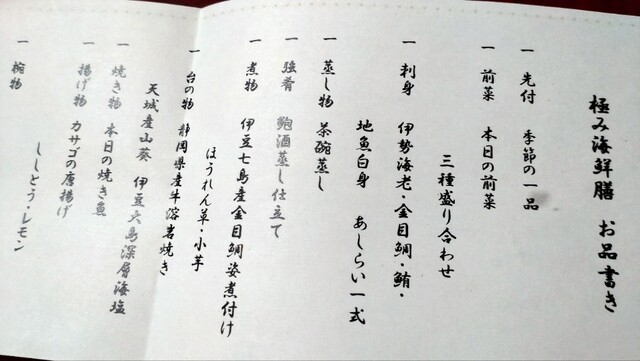 極み海鮮膳 お品書き
一 先付 季節の一品
一 前菜 本日の前菜
三種盛り合わせ
一 刺身 伊勢海老・金目鯛・鮪・
地魚白身 あしらい一式
一 蒸し物 茶碗蒸し
一 強肴 鮑酒蒸し仕立て
一 煮物 伊豆七島産金目鯛姿煮付け
ほうれん草・小芋
一 台の物 静岡県産牛溶岩焼き
天城産山葵 伊豆大島深層海塩
一 焼き物 本日の焼き魚
一 揚げ物 カサゴの唐揚げ
ししとう・レモン
一 椀物